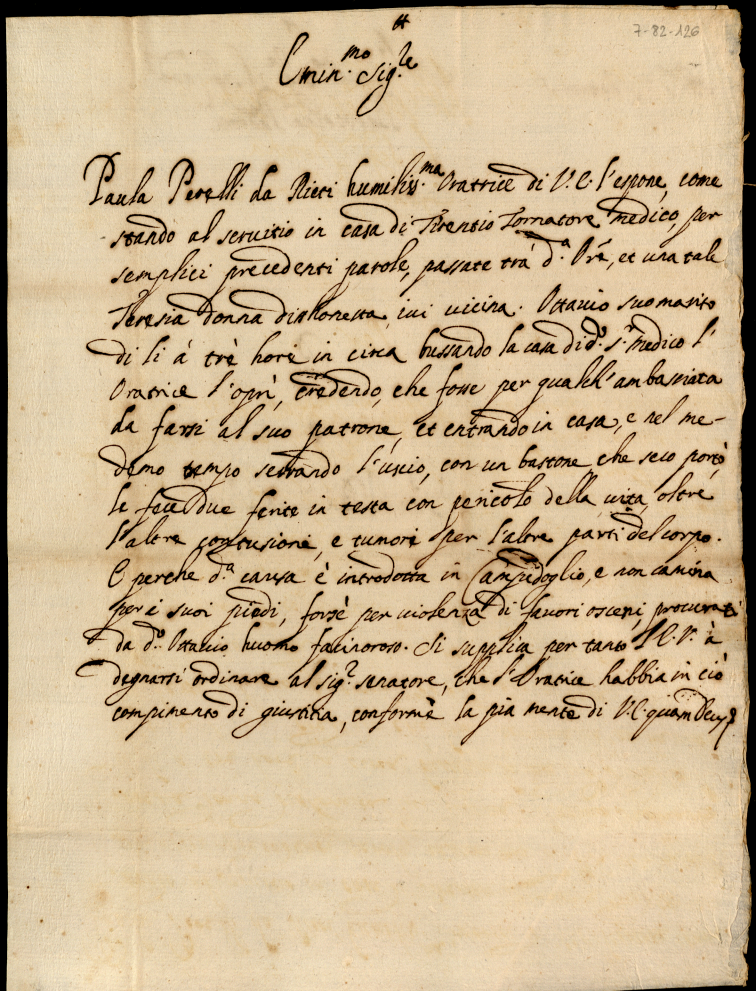 7-82-126
Emin.mo Sig.re
Paula Perelli da Rieti humiliss.ma Oratrice di V.E. l'espone, come
stando al servitio in casa di Terentio Tornatore medico, per
semplici precedenti parole, passate trà d.a Orê, et una tale
Teresia donna dishonesta, ivi vicina. Ottavio suo marito
di lì à trè hore in circa bussando la casa di d.o S.r medico l'
Oratrice l'oprì, credendo, che fosse per qualch'ambasciata
da farsi al suo patrone, et entrando in casa, e nel me-
demo tempo serrando l'uscio, con un bastone che seco portò,
le fece due ferite in testa con pericolo della vita, oltre
l'altre contusione, e tumori per l'altre parti del corpo.
E perche d.a causa è introdotta in Campidoglio, e non camina
per i suoi piedi, forsè per violenza di favori osceni, procurati
da d.o Ottavio huomo facinoroso. Si supplica per tanto l'E.V. à
degnarsi ordinare al sig.r senatore, che l'Oratrice habbia in ciò
compimento di giustitia, conformè la pia mente di V.E. quam Deus